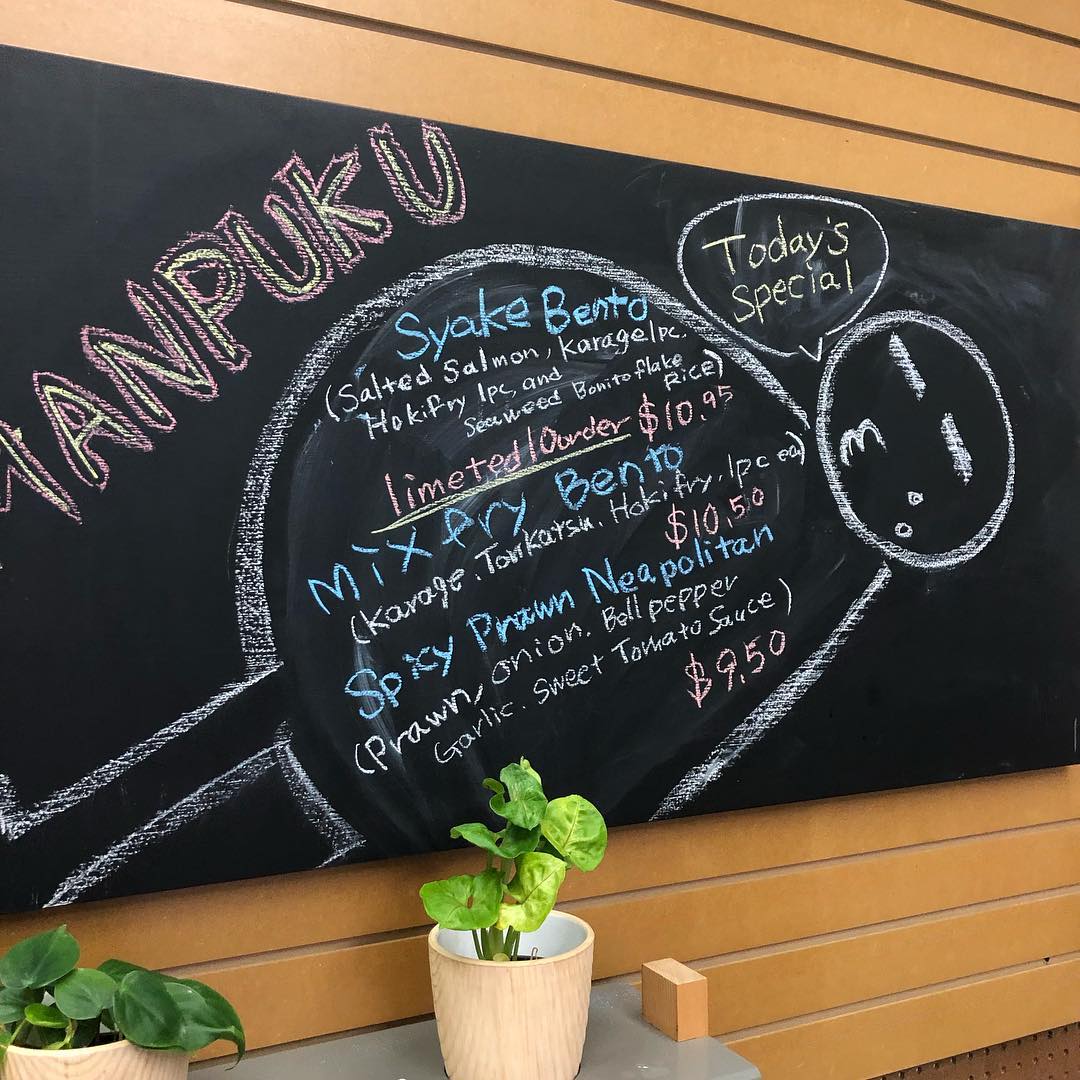 MANPUKU
Today's
Special
Syake Bento
(Salted Salmon, Karage1pc.
Hokifry 1pc, and
Seaweed Bonito flake
Rice)
limeted 10 order $10.95
Mix fry Bento
(Karage. Tonkatsu. Hokifry. 1pc ea)
$10.50
Spicy Prawn Neapolitan
(Prawn, onion. Bell pepper
Garlic. Sweet Tomato Sauce)
$9.50